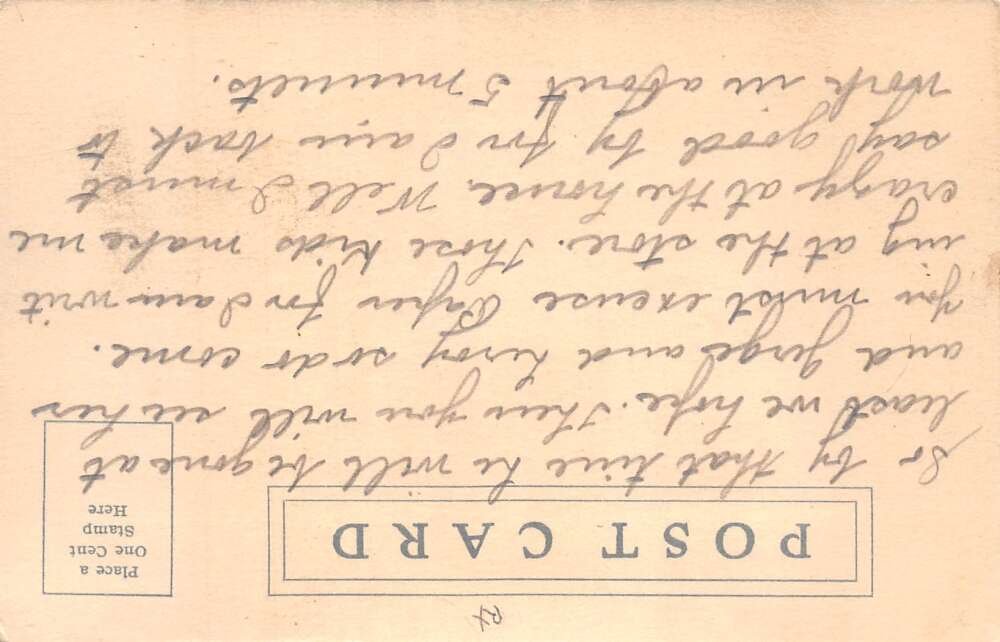 POST CARD
Place a
One Cent
Stamp
Here
So by that time he will be gone at
least we hope. Then you will see her
and and Leroy so do come.
You must excuse Paper for I am writ
ing at the store. Those kids make me
crazy at the house. Well I must
say good by for I am back to
work in about 5 minuets.